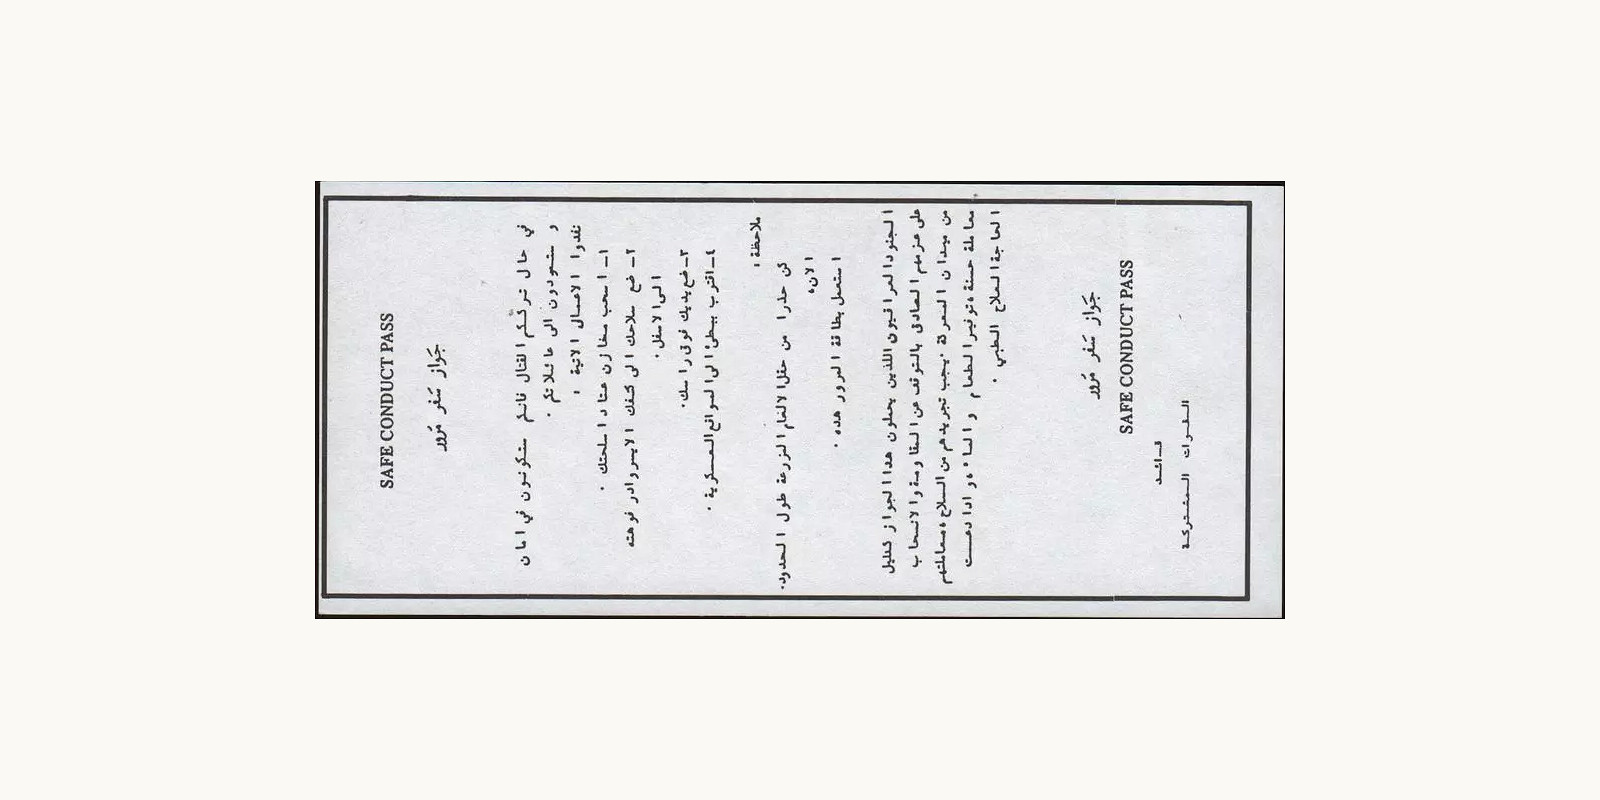 SAFE CONDUCT PASS
جَواز سَفر مَرور
في حال تركـكم القتال فانكم ستكونون في امان
و ستعودون الى عائلاتكم .
نفذوا الاعمال الاتية :
١ـ اسحب مخازن عتاد اسلحتك .
٢ـ ضع سلاحك الى كتفك الايسر وادر فوهته
الى الاسفل .
٣ـ ضع يديك فوق راسك .
٤ـ اقترب ببطئ الى المواقع العسكرية .
ملاحظة :
كن حذرا من حقل الالغام المزرعة طول الحدود .
الان ،
استعمل بطاقة المرور هذه .
الجنود العراقيون اللذين يحملون هذا الجواز كدليل
على عزمهم الصادق بالتوقف عن المقاومة والانسحاب
من ميدان المعركة . يجب تجريدهم من السلاح ، معاملتهم
معاملة حسنة ، توفير الطعام و الماء ، و اذا دعت
الحاجة العلاج الطبي .
جَواز سَفر مَرور
SAFE CONDUCT PASS
قـائـد
القـوات المـشتركـة